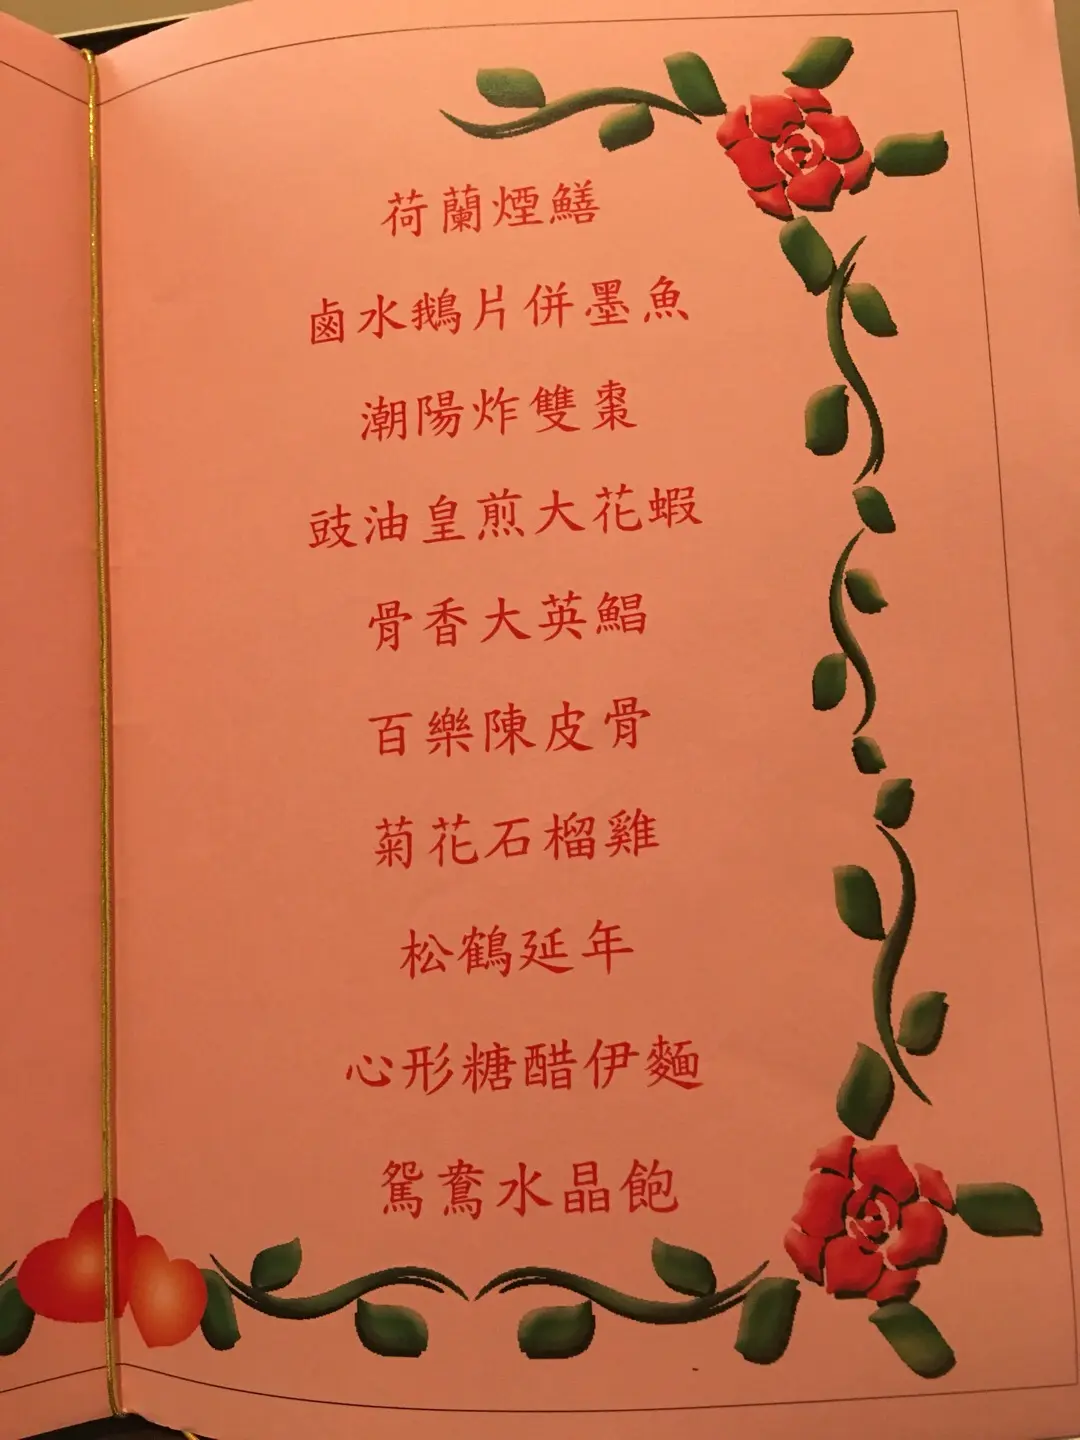 荷蘭煙鱔
鹵水鵝片併墨魚
潮陽炸雙棗
豉油皇煎大花蝦
骨香大英鯧
百樂陳皮骨
菊花石榴雞
松鶴延年
心形糖醋伊麵
鴛鴦水晶飽